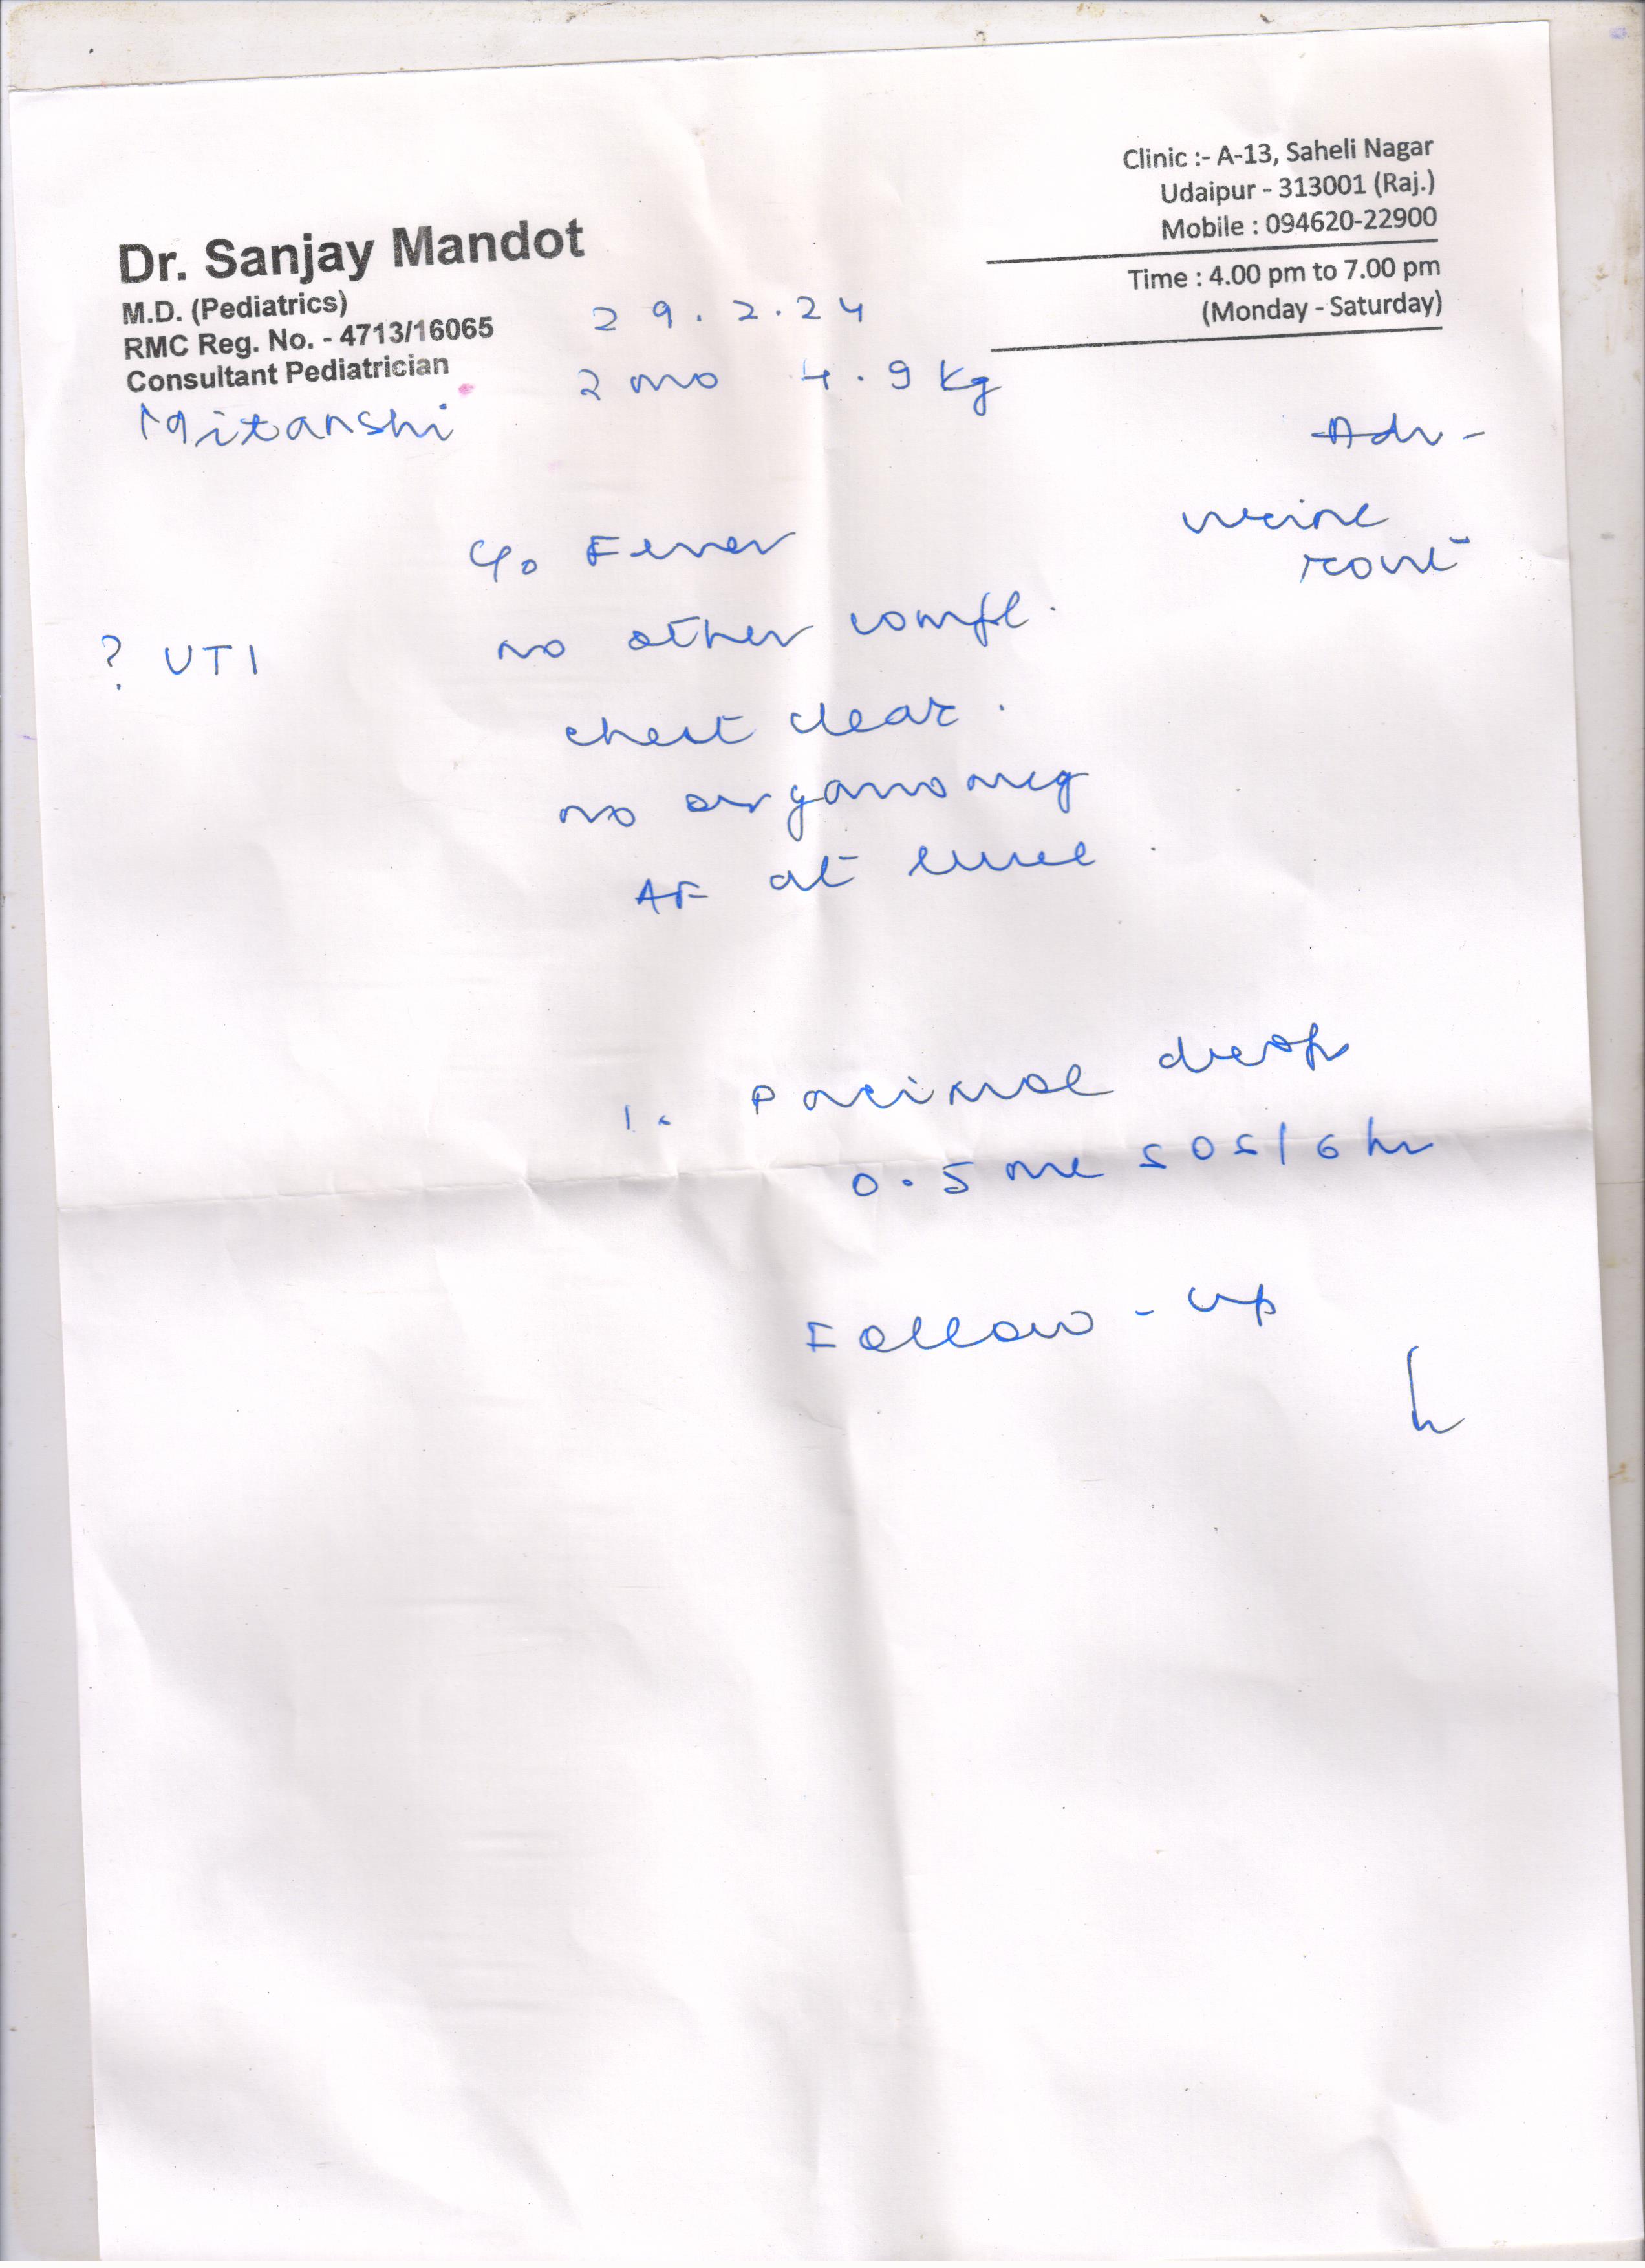 Clinic :- A-13, Saheli Nagar
Udaipur - 313001 (Raj.)
Mobile : 094620-22900
Time : 4.00 pm to 7.00 pm
(Monday - Saturday)
Dr. Sanjay Mandot
M.D. (Pediatrics)
RMC Reg. No. - 4713/16065
Consultant Pediatrician
29.2.24
2 mo 4.9 kg
Mitanshi
Adv -
urine
rout
c/o Fever
no other compl.
? UTI
chest clear.
no organomeg
AF at level
1. Pacimol drops
0.5 ml SOS/6 hr
Follow-up